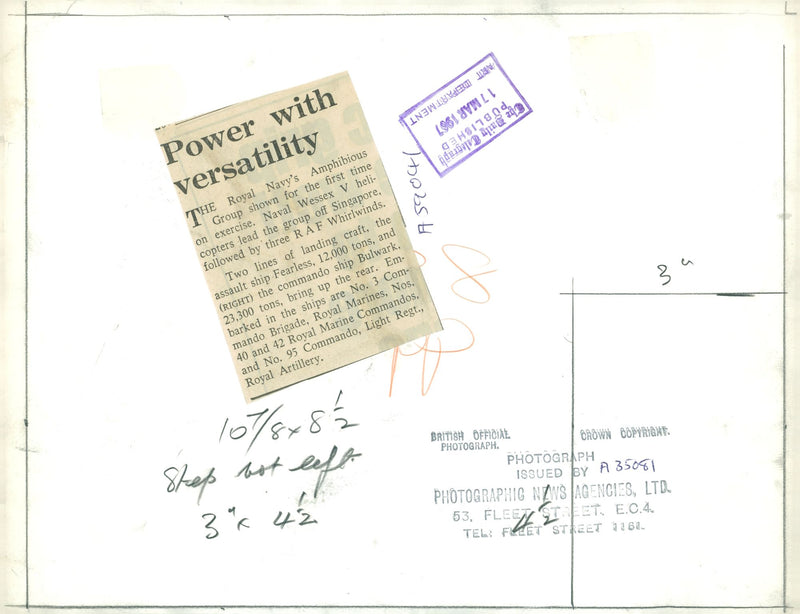 Power with
versatility
THE Royal Navy's Amphibious
Group shown for the first time
on exercise. Naval Wessex V heli-
copters lead the group off Singapore,
followed by three RAF Whirlwinds.
Two lines of landing craft, the
assault ship Fearless, 12,000 tons, and
(RIGHT) the commando ship Bulwark,
23,300 tons, bring up the rear. Em-
barked in the ships are No. 3 Com-
mando Brigade, Royal Marines, Nos.
40 and 42 Royal Marine Commandos,
and No. 95 Commando, Light Regt.,
Royal Artillery.
The Daily Telegraph
PUBLISHED
17 MAR 1967
ART DEPARTMENT
8
3"
10 7/8 x 8 1/2
Step bot left
3" x 4 1/2"
BRITISH OFFICIAL
PHOTOGRAPH.
CROWN COPYRIGHT.
PHOTOGRAPH
ISSUED BY A35081
PHOTOGRAPHIC NEWS AGENCIES, LTD.
53, FLEET STREET, E.C.4.
4 1/2
TEL: FLEET STREET